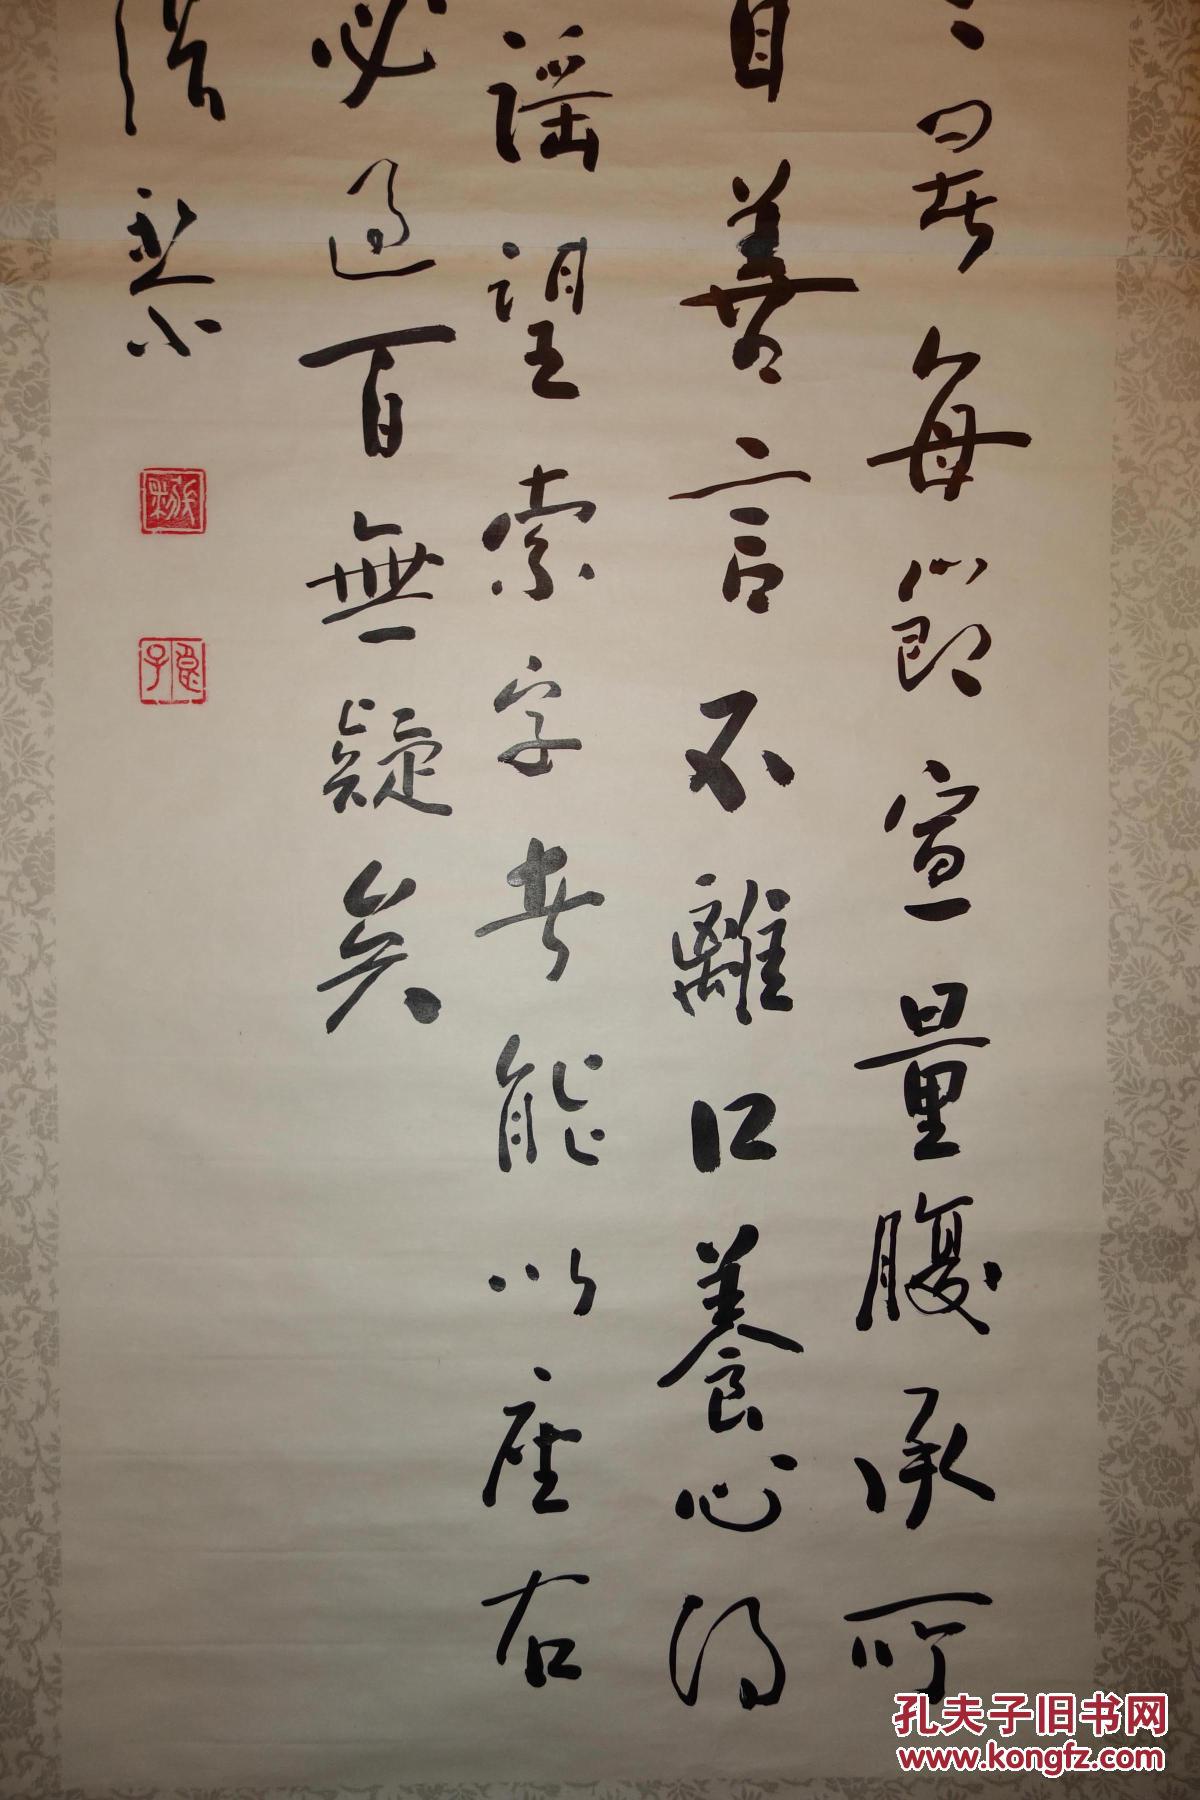 晷每節宣量腹承所
自善言不離口養心得
謡望索字者能以座右
必過百無疑矣
孔夫子旧书网
www.kongfz.com